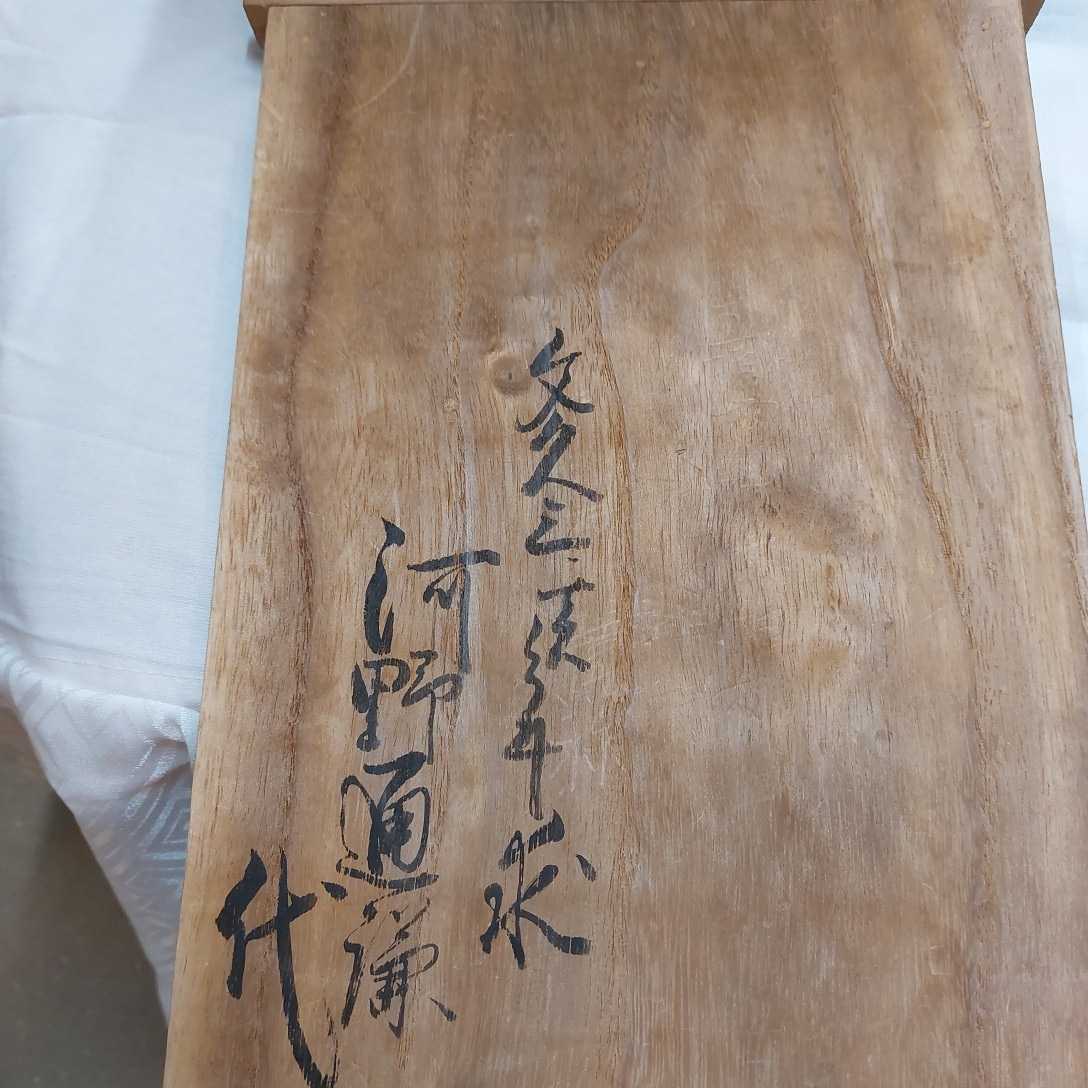 文久三癸亥年求
河野通謙
代